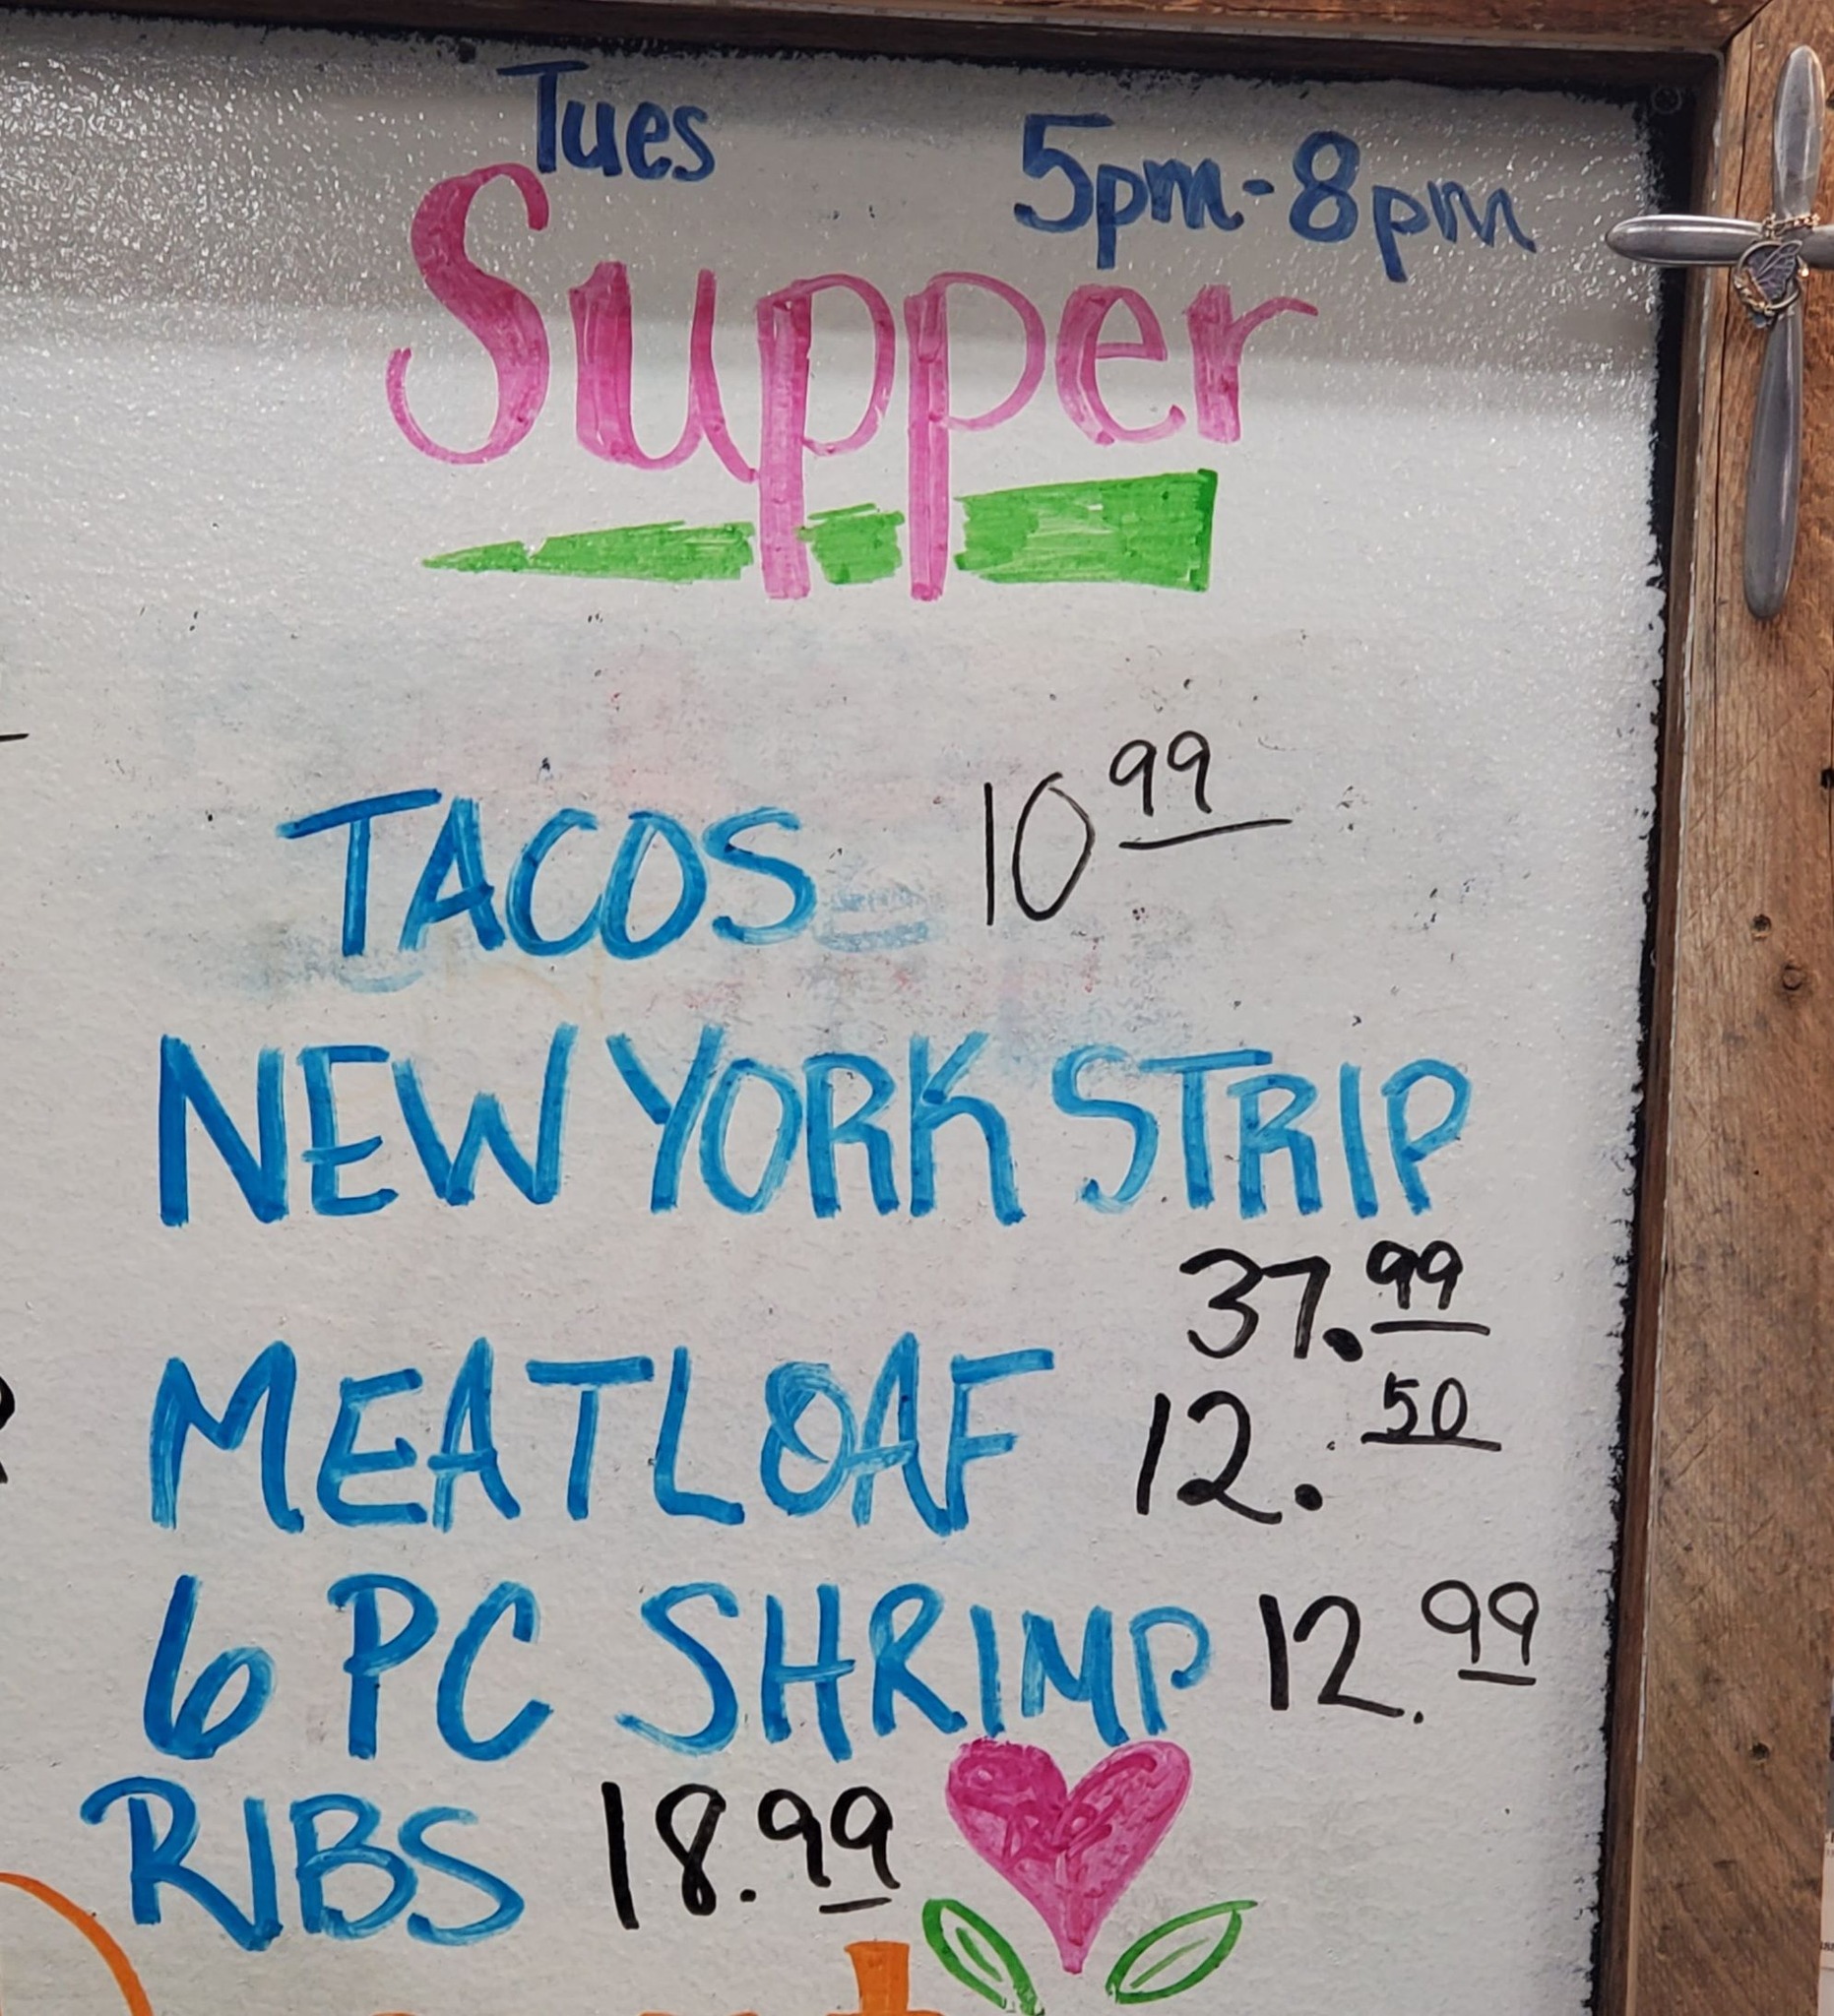 Tues 5pm-8pm
Supper
TACOS 10 99
NEW YORK STRIP
37.99
MEATLOAF 12.50
6 PC SHRIMP 12.99
RIBS 18.99